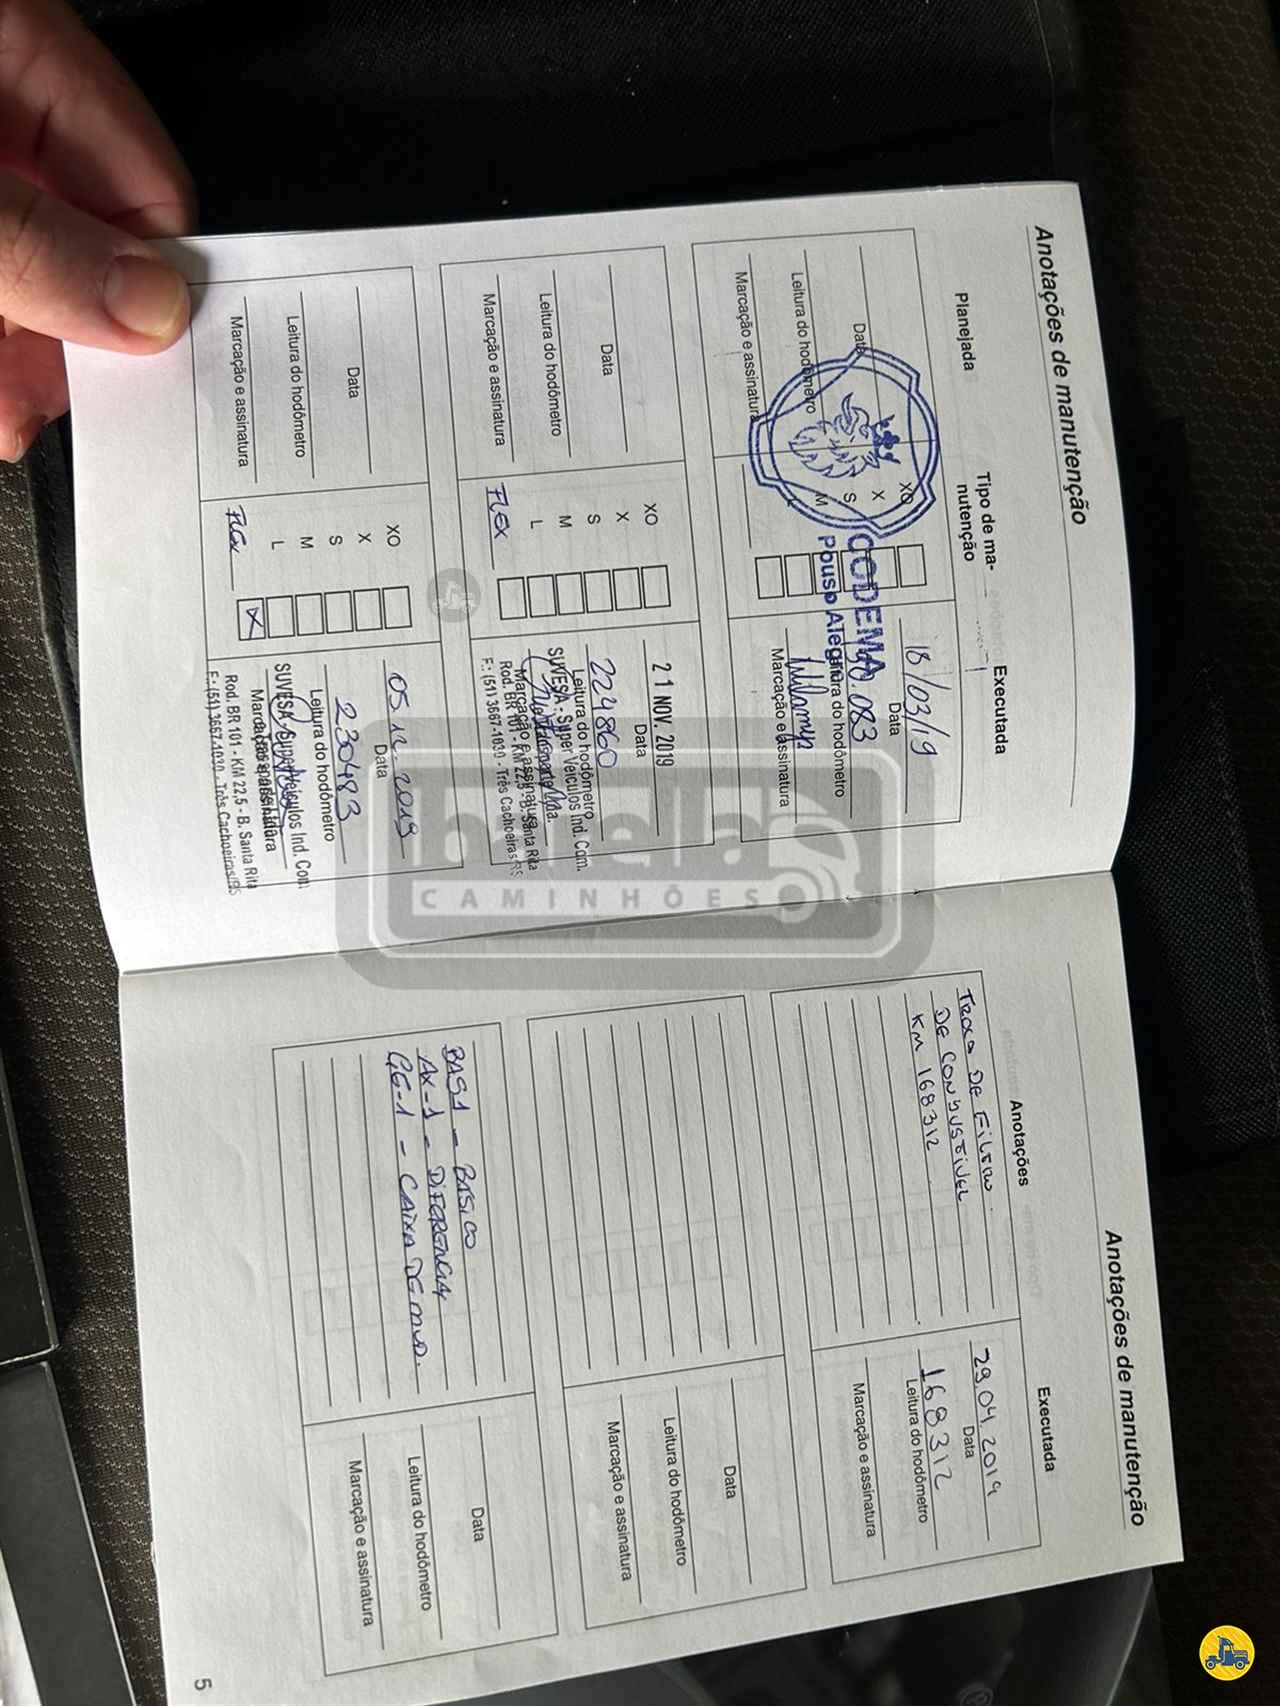 Anotações de manutenção
Planejada
Tipo de ma-
nutenção
Executada
Data
Leitura do hodômetro
Marcação e assinatura
XO
X
S
M
18/03/19
Data
083
Leitura do hodômetro
Marcação e assinatura
CODEMA
Pouso Alegre
Data
Leitura do hodômetro
Marcação e assinatura
XO
X
S
M
L
FLEX
21 NOV. 2019
Data
224860
Leitura do hodômetro
SUVESA - Super Veículos Ind. Com.
Marcação e assinatura
Rod. BR 101 - KM 22,5 - B. Santa Rita
F.: (51) 3667-1030 - Três Cachoeiras/RS
Data
Leitura do hodômetro
Marcação e assinatura
XO
X
S
M
L
FLEX
X
05.12.2019
Data
230483
Leitura do hodômetro
SUVESA - Super Veículos Ind. Com
Marcação e assinatura
Rod. BR 101 - KM 22,5 - B. Santa Rita
F.: (51) 3667-1030 - Três Cachoeiras/RS
Anotações de manutenção
Anotações
Executada
TROCA DE FILTRO
DE COMBUSTIVEL
KM 168312
29.04.2019
Data
168312
Leitura do hodômetro
Marcação e assinatura
Data
Leitura do hodômetro
Marcação e assinatura
BAS1 - BASICO
AX-1 - DIFERENCIAL
GE-1 - CAIXA DE MUD.
Data
Leitura do hodômetro
Marcação e assinatura
5
CAMINHÕES